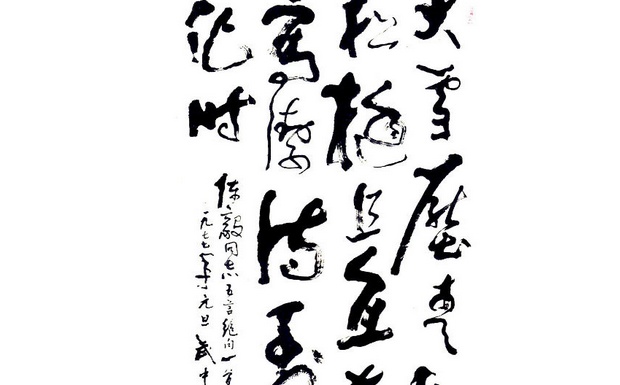 大雪壓青
松挺且直
高潔待到
化時
陈毅同志五言絕句一
一九七七年元旦 武中